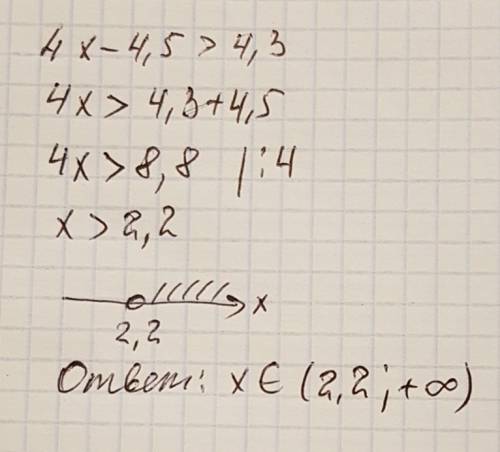 4x-4,5>4,3
4x>4,3+4,5
4x>8,8 |:4
x>2,2
x
2,2
Ответ: x∈(2,2;+∞)